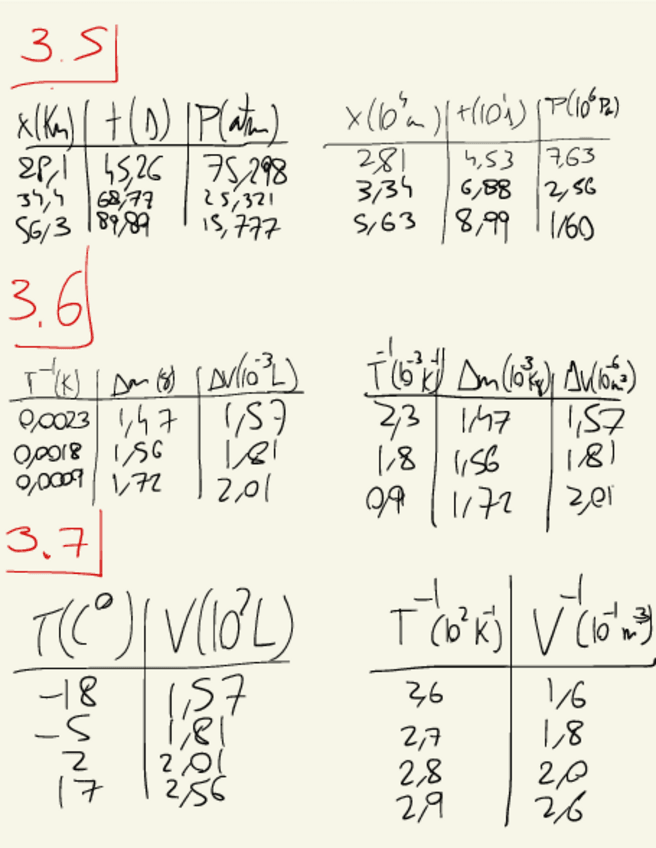 3.5
x(Km) t(s) P(atm) x(10⁴m) t(10¹s) P(10⁶Pa)
28,1 45,26 75,298 2,81 4,53 7,63
34,4 68,77 25,321 3,34 6,88 2,56
56,3 89,89 15,777 5,63 8,99 1,60
3.6
T⁻¹(K) Δm(g) ΔV(10⁻³L) T⁻¹(10⁻³K⁻¹) Δm(10⁻³Kg) ΔV(10⁻⁶m³)
0,0023 1,47 1,57 2,3 1,47 1,57
0,0018 1,56 1,81 1,8 1,56 1,81
0,0009 1,72 2,01 0,9 1,72 2,01
3.7
T(C°) V(10²L) T⁻¹(10²K⁻¹) V⁻¹(10⁻¹m³)
-18 1,57 2,6 1,6
-5 1,81 2,7 1,8
2 2,01 2,8 2,0
17 2,56 2,9 2,6